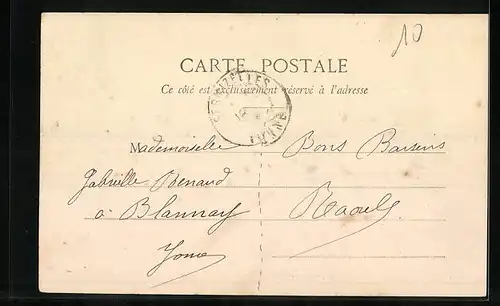 10
CARTE POSTALE
Ce côté est exclusivement réservé à l'adresse
SERMIZELLES
Mademoiselle
Gabrielle Renaud
à Blannay
Yonne
Bons Baisers
Raoul